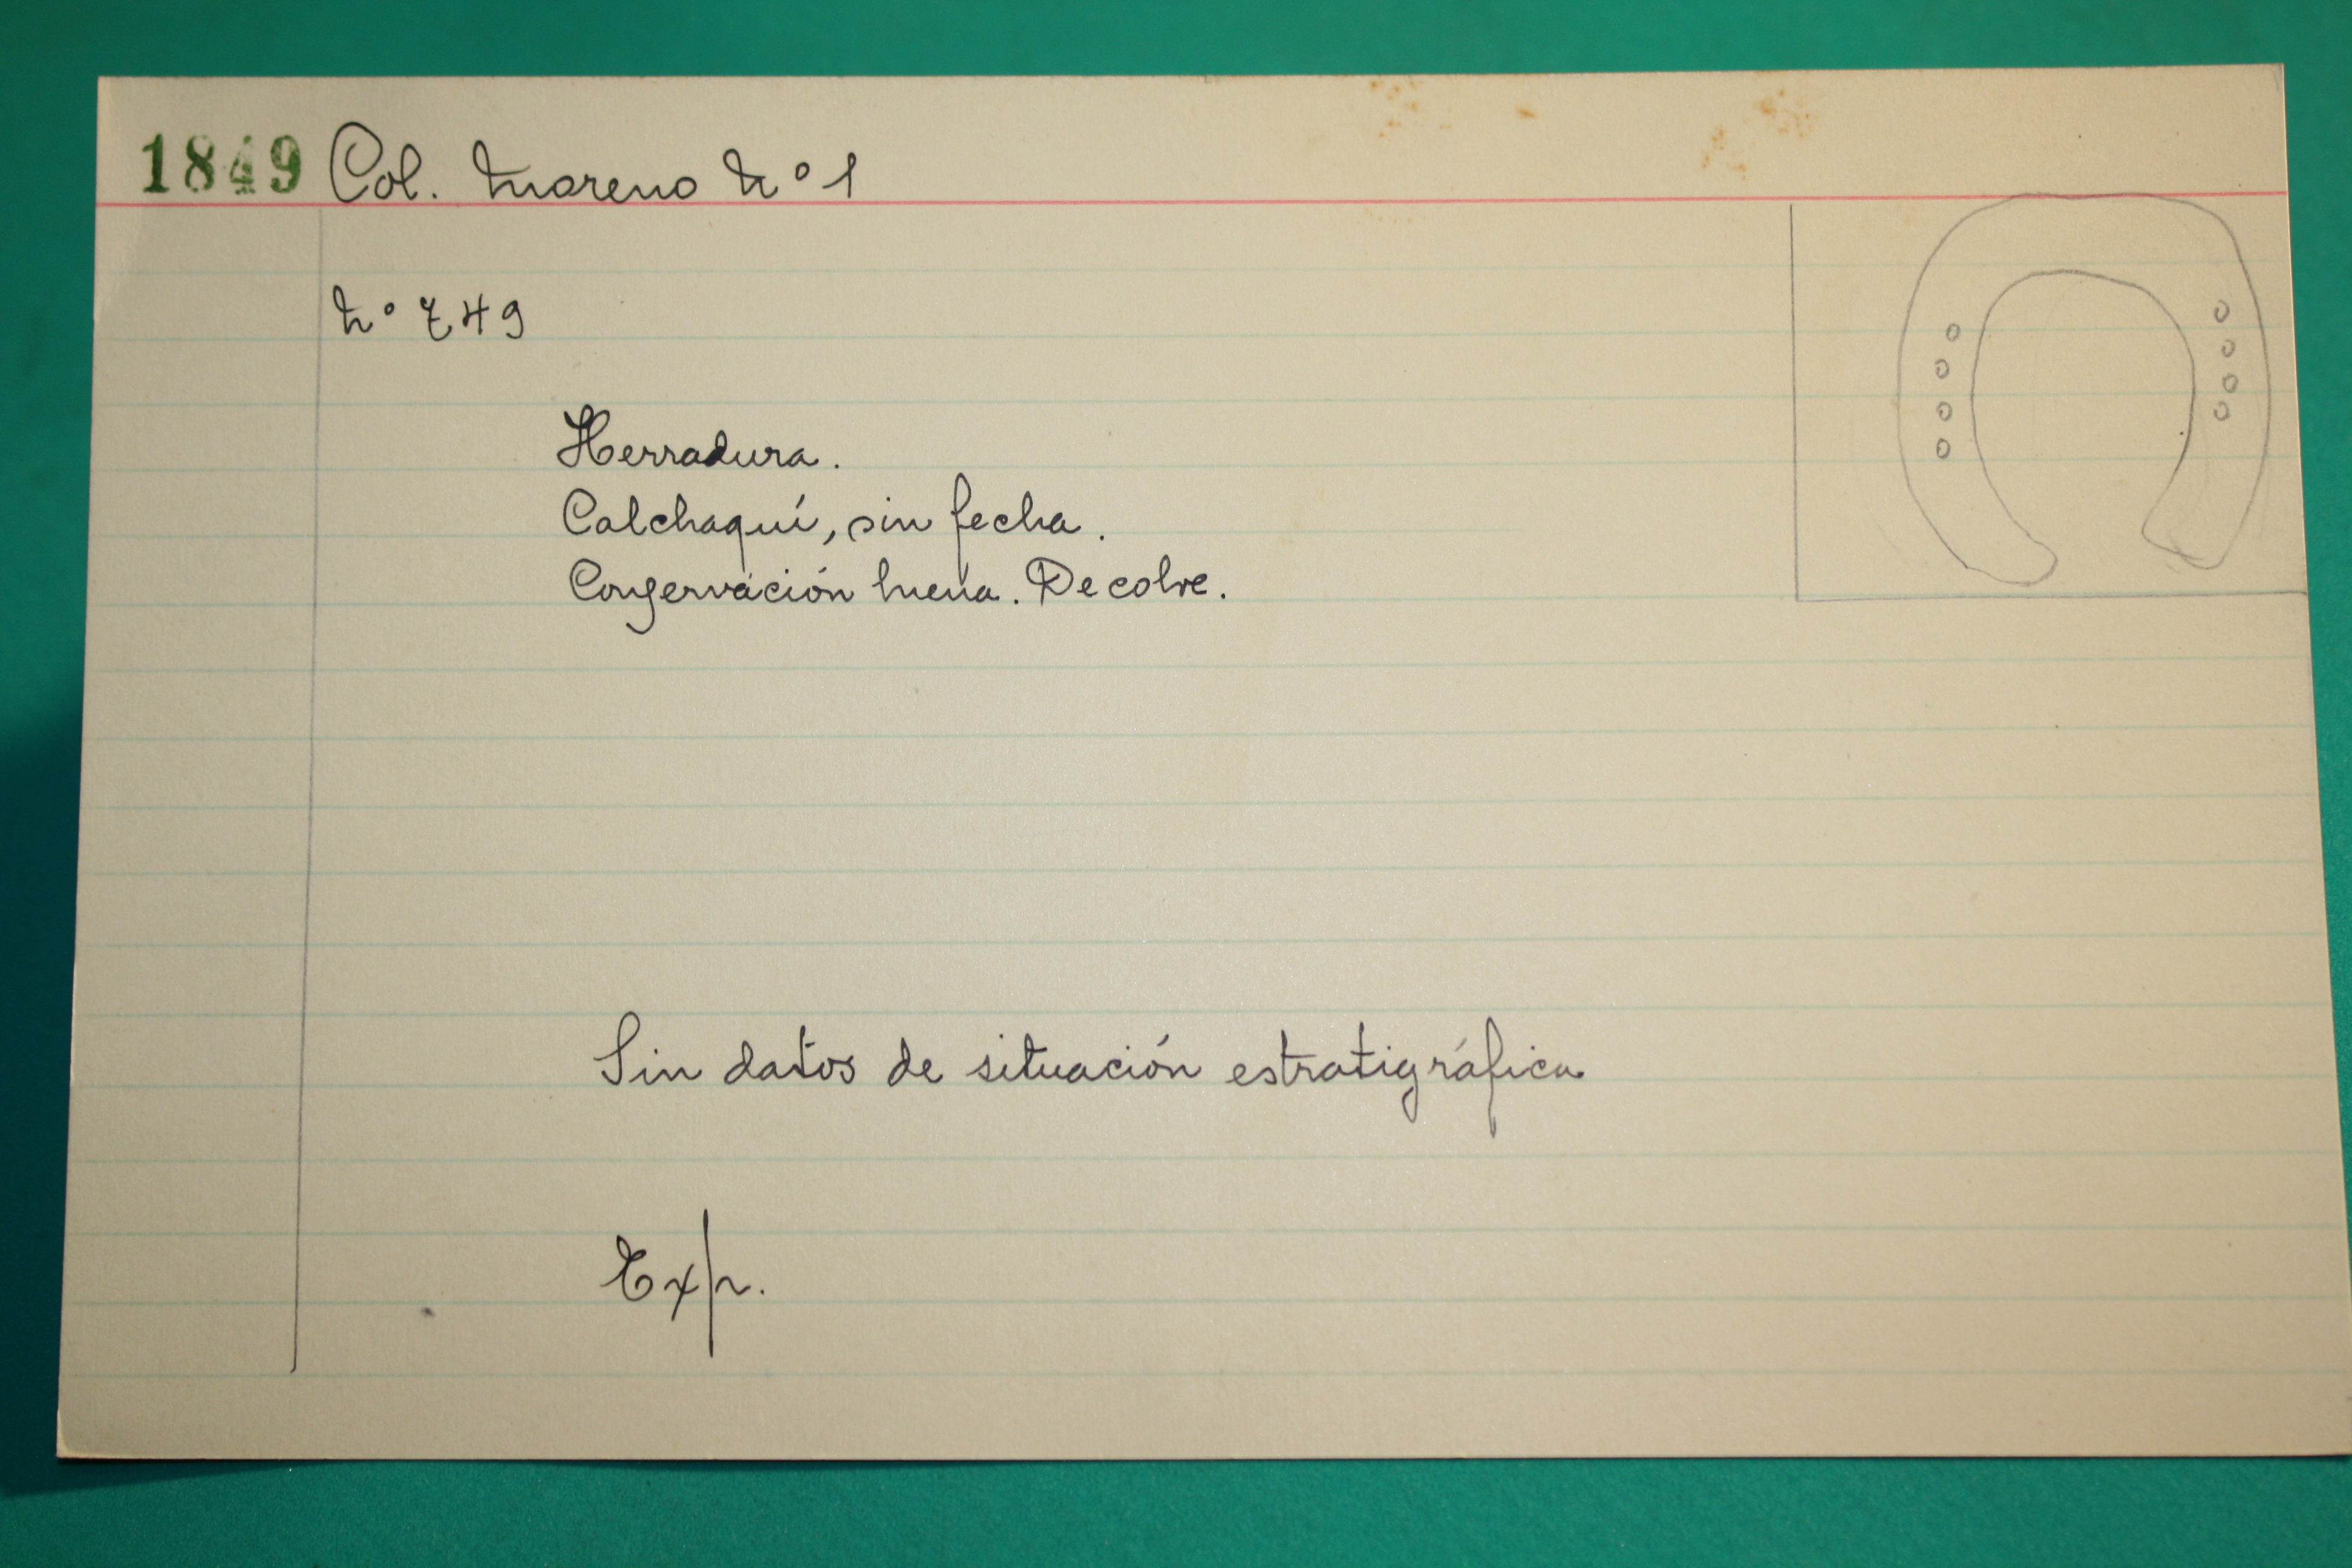 1849 Col. Moreno Nº 1
Nº 749
Herradura.
Calchaquí, sin fecha.
Conservación buena. De cobre.
Sin datos de situación estratigráfica
Exp.